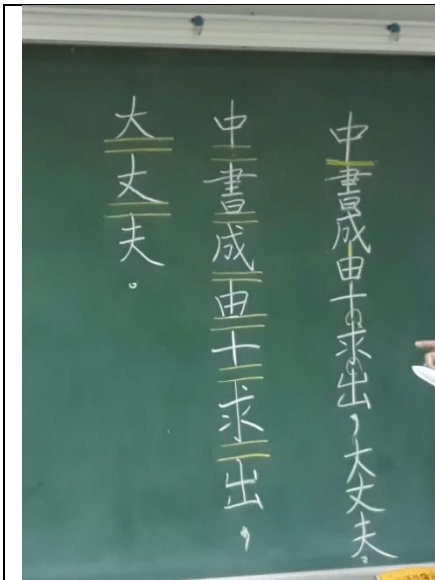 中書成由十求出，大丈夫。
中書成由十求出，
大丈夫。